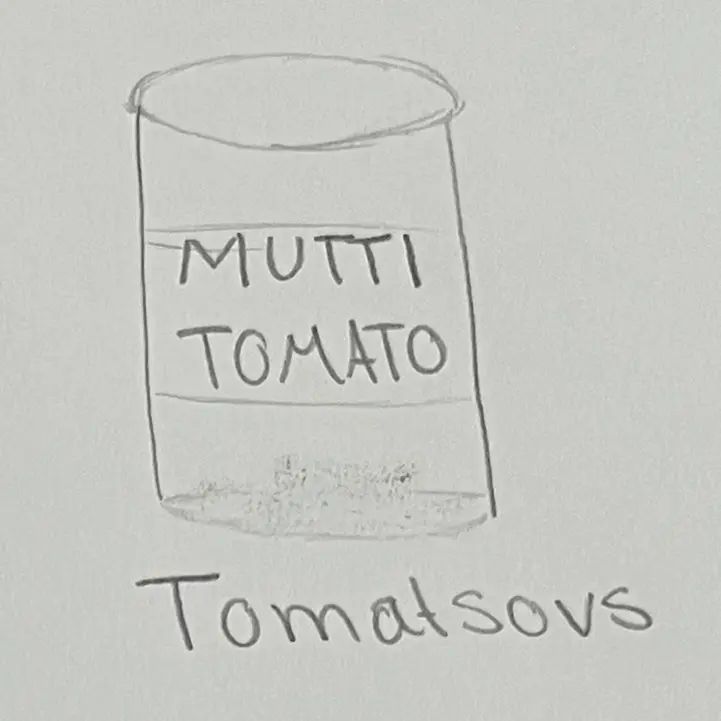 MUTTI
TOMATO
Tomatsovs